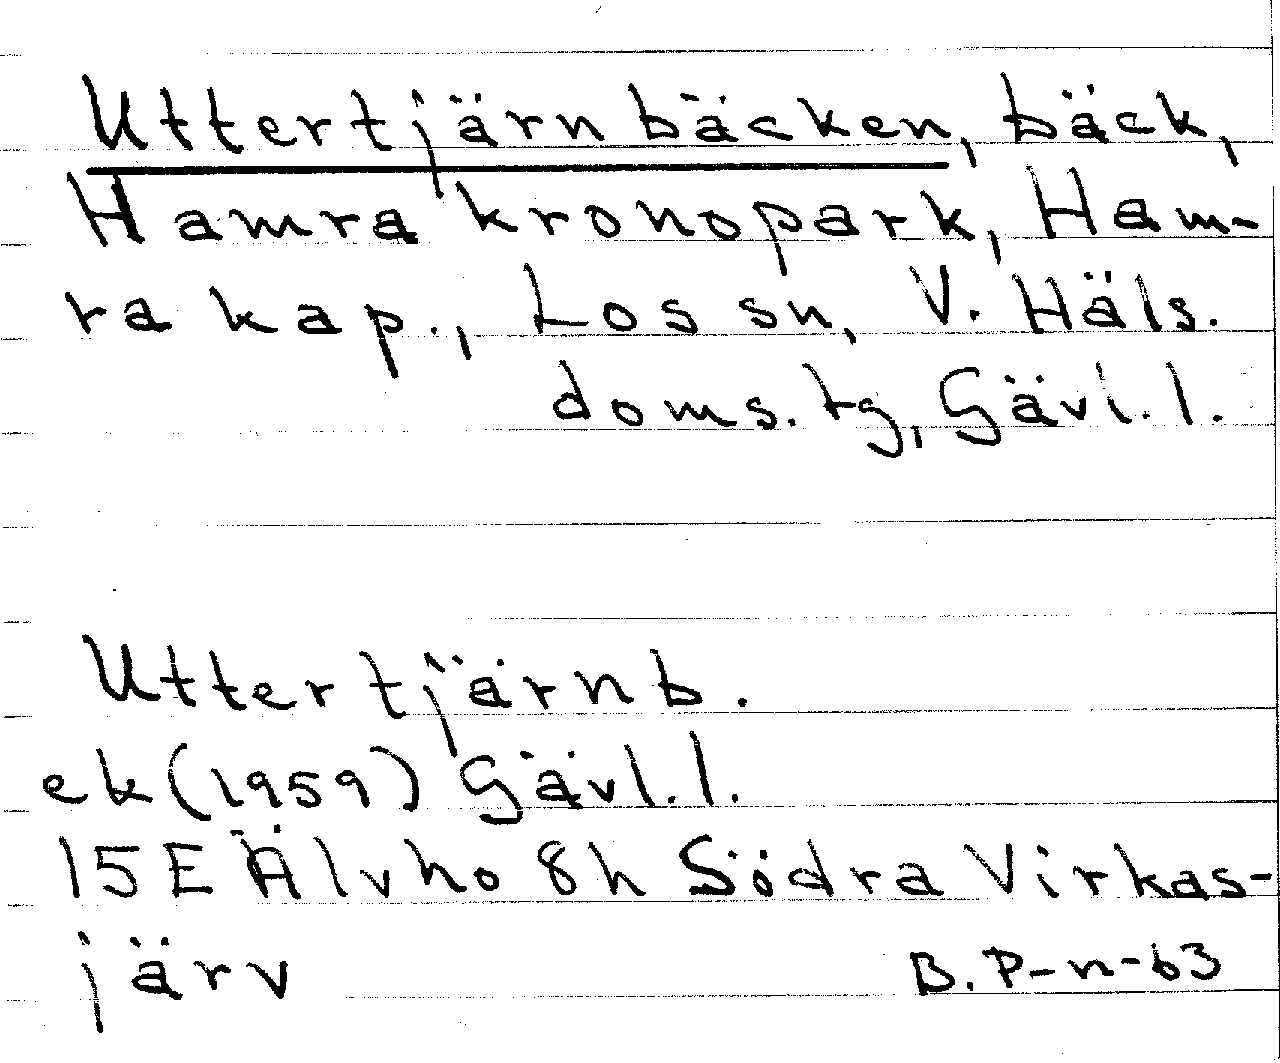 Uttertjärnbäcken, bäck,
Hamra kronopark, Ham-
ra kap., Los sn, V. Häls.
doms. tg, Gävl. l.
Uttertjärnb.
ek (1959) Gävl. l.
15E Älvho 8h Södra Virkas-
järv
B. P-n-63